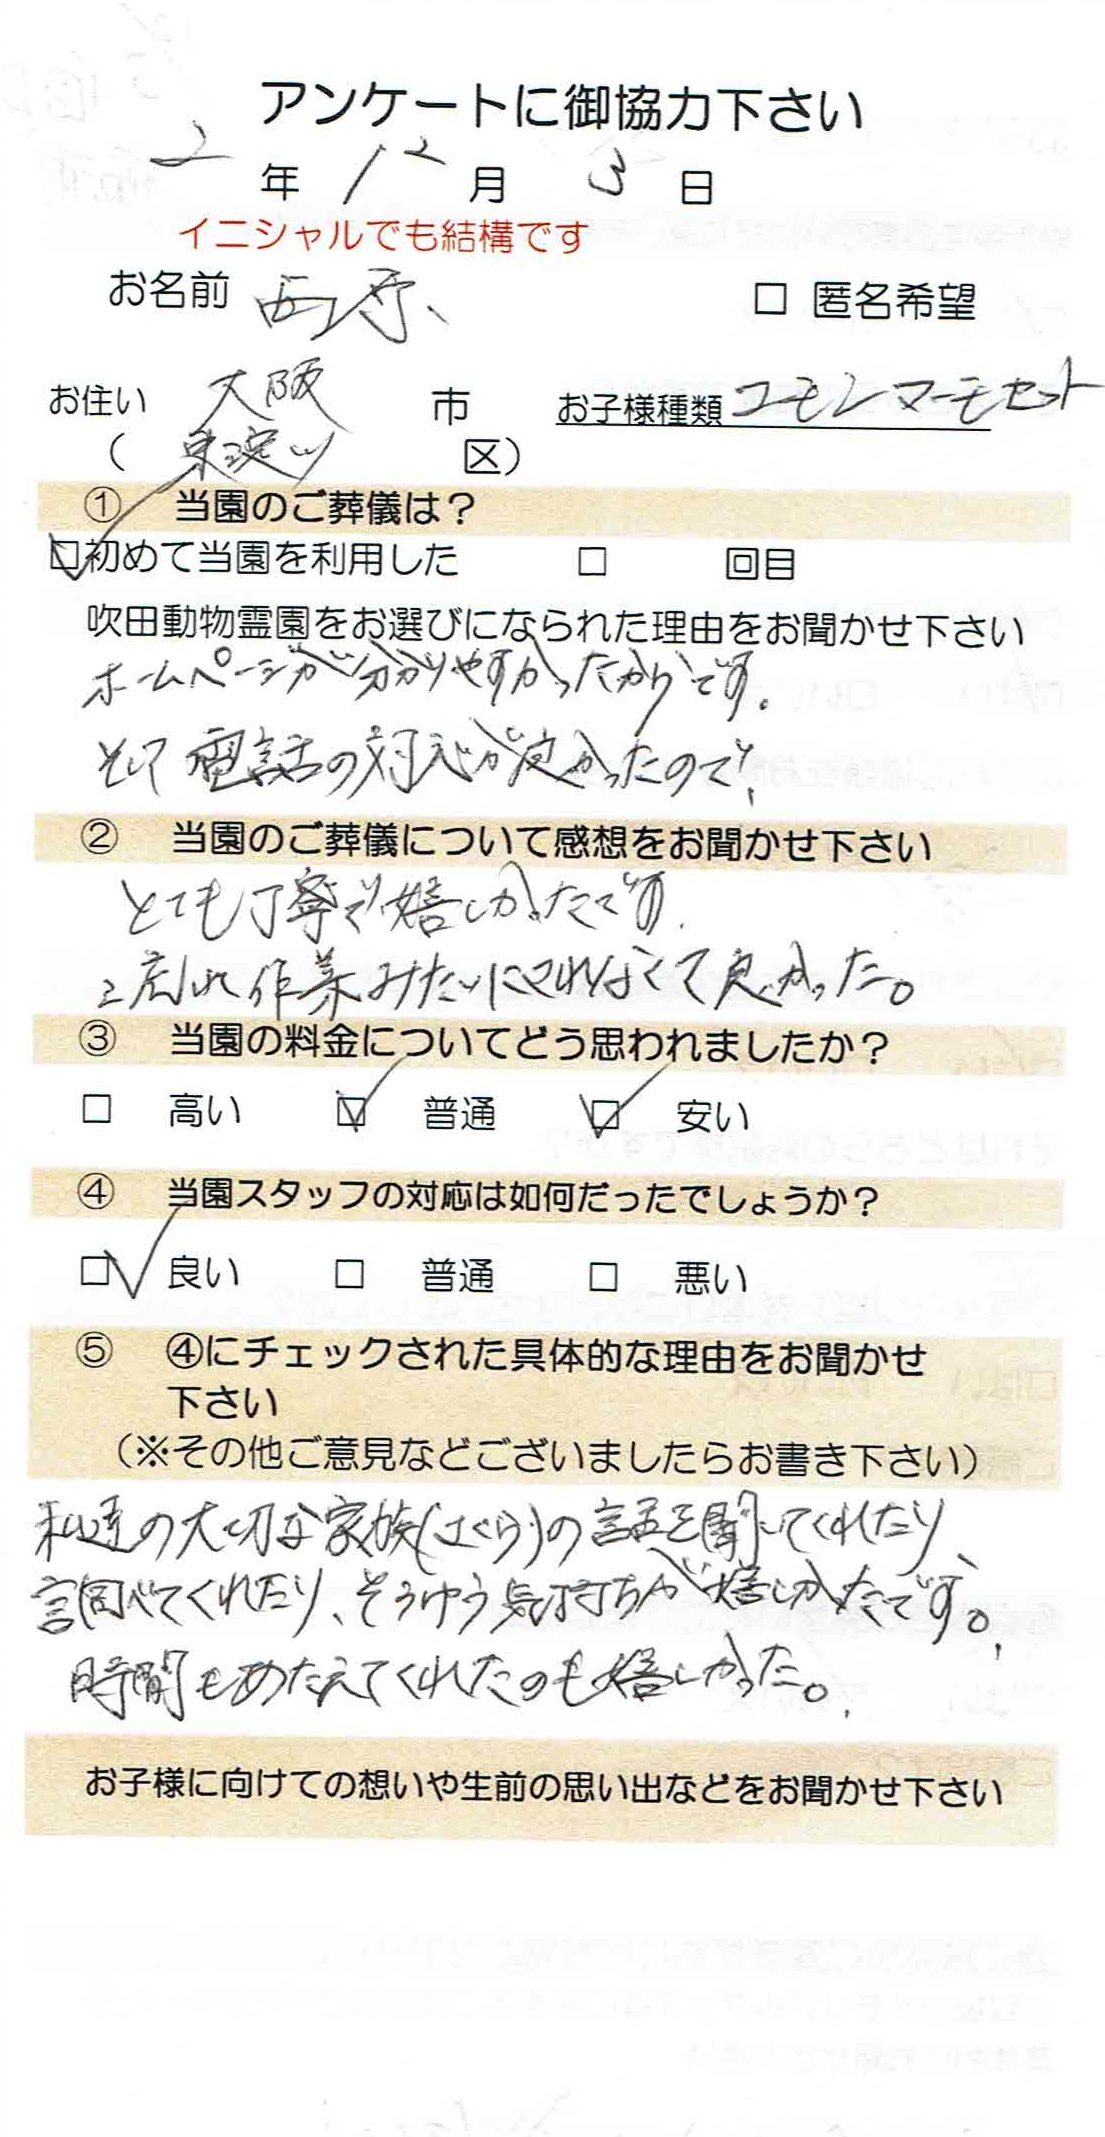 アンケートに御協力下さい
2年12月3日
イニシャルでも結構です
お名前 西原 □ 匿名希望
お住い 大阪市 お子様種類 コモンマーモセット
(東淀川区)
① 当園のご葬儀は?
☑初めて当園を利用した □ 回目
吹田動物霊園をお選びになられた理由をお聞かせ下さい
ホームページが分かりやすかったからです。
そして電話の対応が良かったので、
② 当園のご葬儀について感想をお聞かせ下さい
とても丁寧で嬉しかったです。
流れ作業みたいにされなくて良かった。
③ 当園の料金についてどう思われましたか?
□ 高い ☑ 普通 ☑ 安い
④ 当園スタッフの対応は如何だったでしょうか?
☑ 良い □ 普通 □ 悪い
⑤ ④にチェックされた具体的な理由をお聞かせ
下さい
(※その他ご意見などございましたらお書き下さい)
私達の大切な家族(さくら)の話を聞いてくれたり、
調べてくれたり、そうゆう気持ちが嬉しかったです。
時間もあたえてくれたのも嬉しかった。
お子様に向けての想いや生前の思い出などをお聞かせ下さい